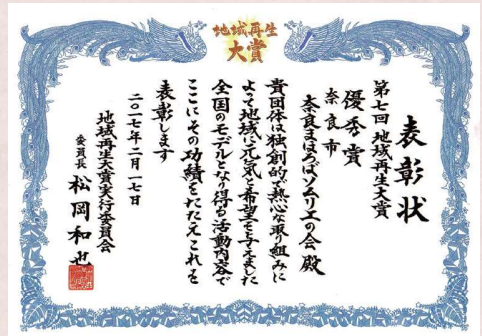 地域再生
大賞
表彰状
第七回 地域再生大賞
優秀賞
奈良市
奈良まほろばソムリエの会 殿
貴団体は独創的で熱心な取り組みに
よって地域に元気と希望を与えました
全国のモデルとなり得る活動内容で
ここにその功績をたたえこれを
表彰します
二〇一七年二月一七日
地域再生大賞実行委員会
委員長 松岡和也